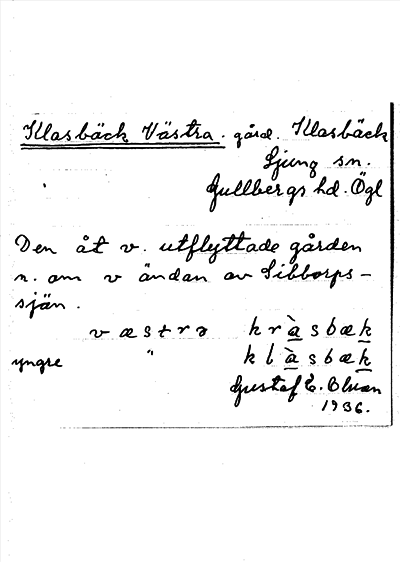 Klasbäck Västra. gård. Klasbäck
Ljung sn.
Gullbergs hd. Ögl
Den åt v. utflyttade gården
n. om v ändan av Sibborps-
sjön.
væstrə kràsbæk
yngre " klàsbæk
Gustaf E. Olson
1936.